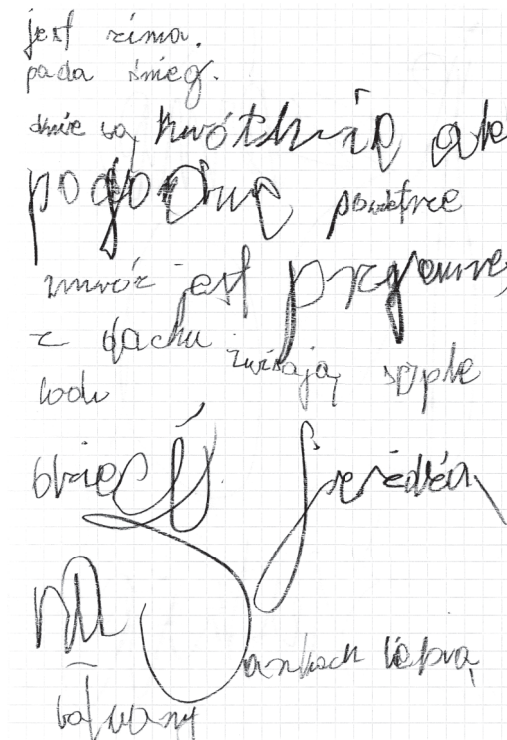 jest zima.
pada śnieg.
dnie są krótkie ale
pogodne powietrze
mroźne jest przyjemne
z dachu zwisają sople
lodu
dzieci jeżdżą
na
sankach lepią
bałwany